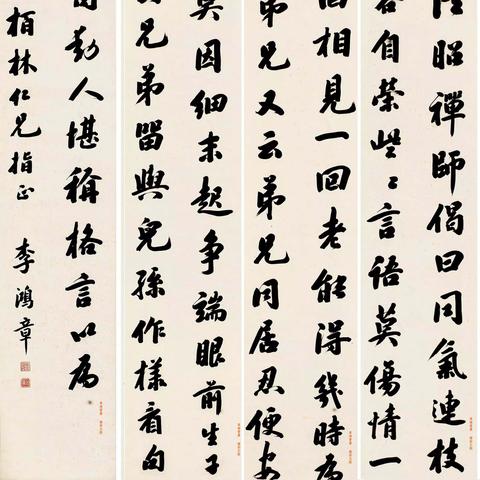 昭禪師偈曰同氣連枝
各自榮些〻言語莫傷情一
回相見一回老能得幾時為
弟兄又云弟兄同居忍便安
莫因細末起爭端眼前生子
又兄弟留與兒孫作樣看句
動人堪稱格言以為
栢林仁兄指正 李鴻章